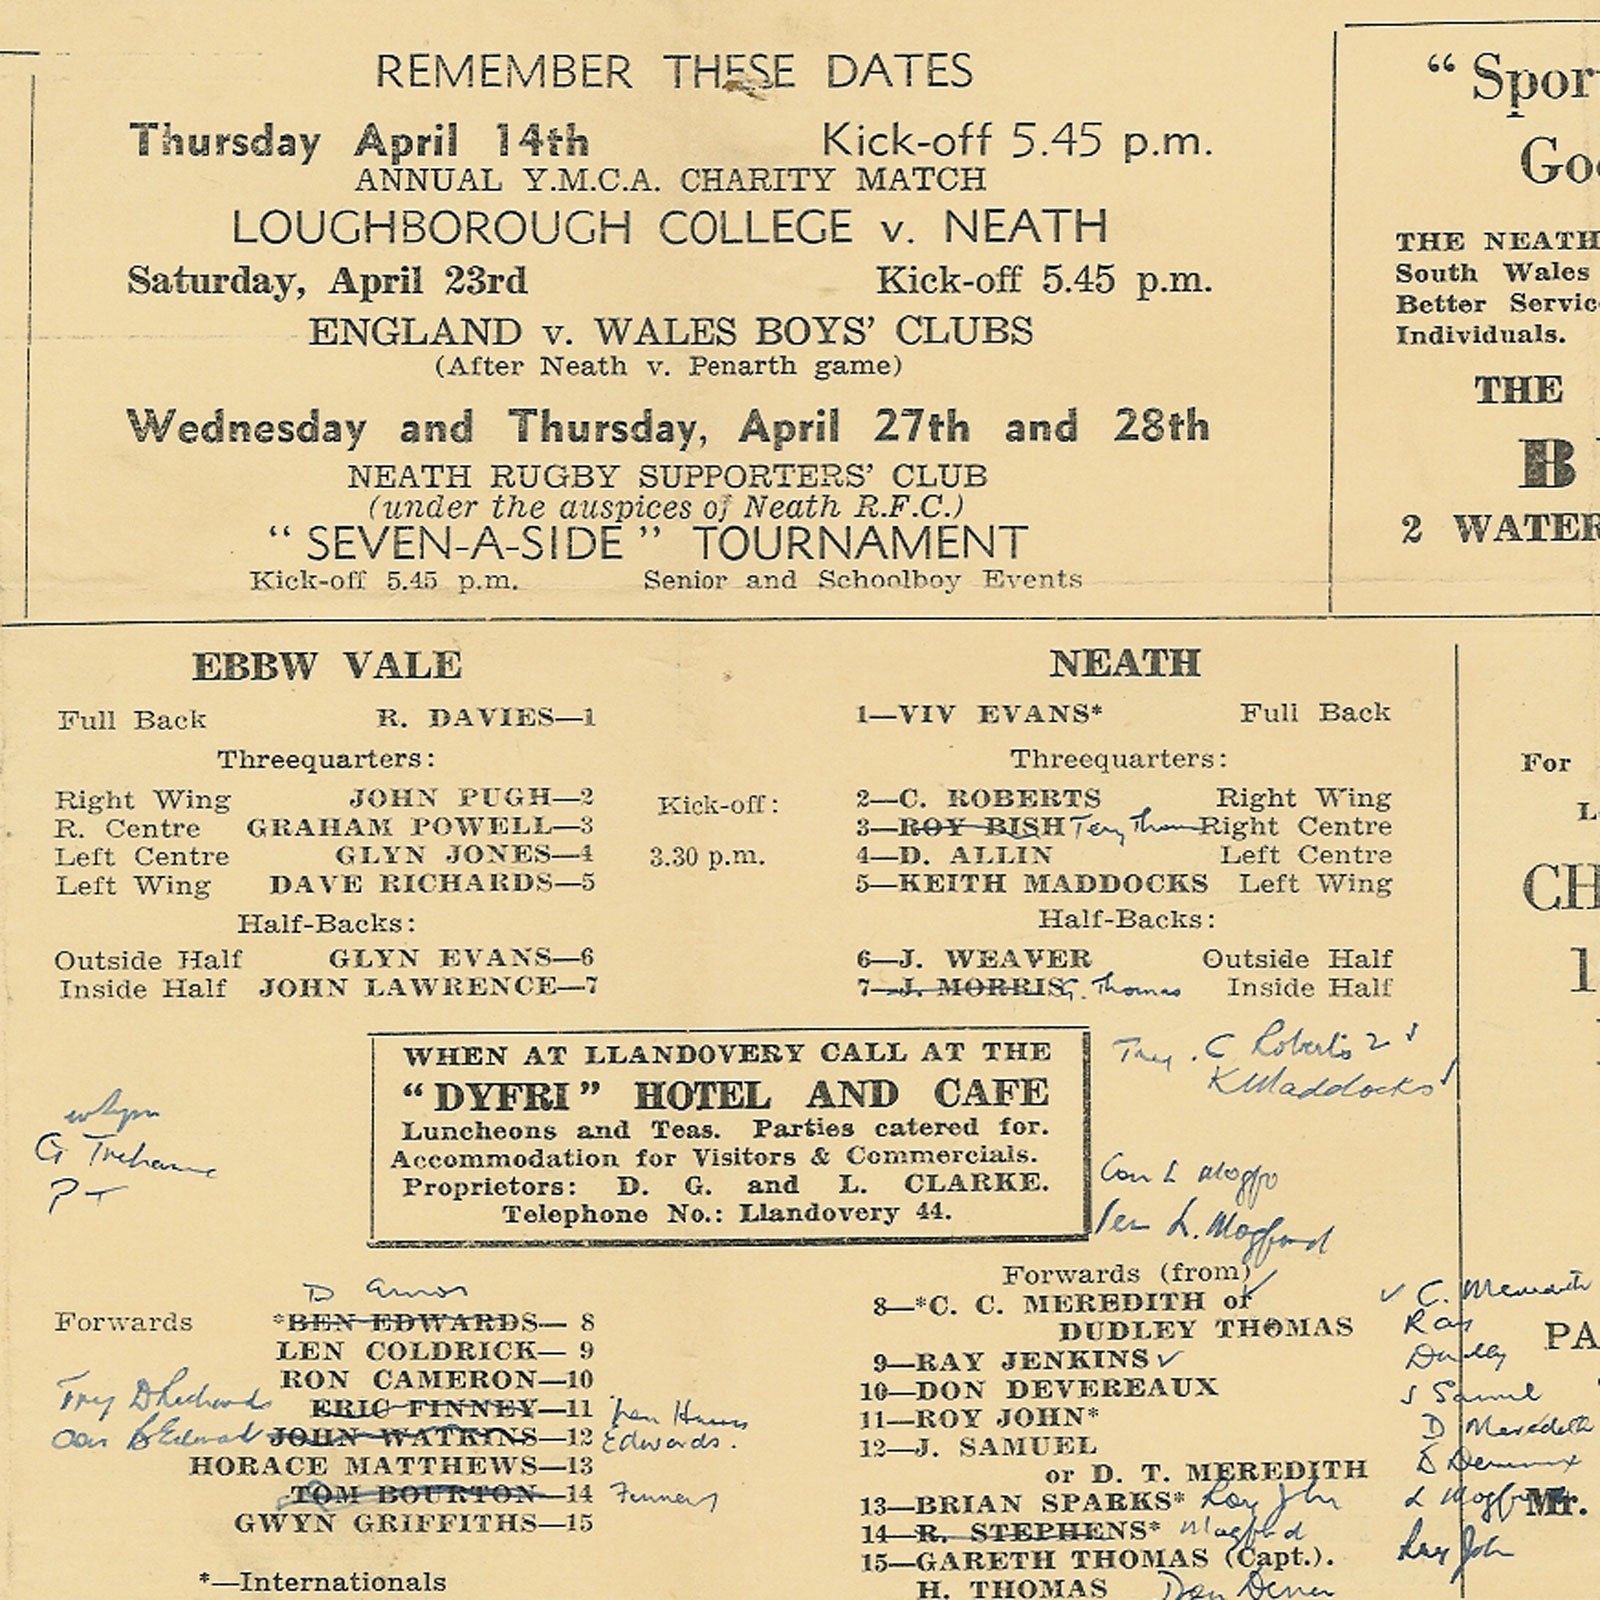 REMEMBER THESE DATES
Thursday April 14th Kick-off 5.45 p.m.
ANNUAL Y.M.C.A. CHARITY MATCH
LOUGHBOROUGH COLLEGE v. NEATH
Saturday, April 23rd Kick-off 5.45 p.m.
ENGLAND v. WALES BOYS' CLUBS
(After Neath v. Penarth game)
Wednesday and Thursday, April 27th and 28th
NEATH RUGBY SUPPORTERS' CLUB
(under the auspices of Neath R.F.C.)
"SEVEN-A-SIDE" TOURNAMENT
Kick-off 5.45 p.m. Senior and Schoolboy Events
THE NEATH
South Wales
Better
Individuals.
THE
2
EBBW VALE
Full Back R. DAVIES—1
Threequarters:
Right Wing JOHN PUGH—2
R. Centre GRAHAM POWELL—3
Left Centre GLYN JONES—4
Left Wing DAVE RICHARDS—5
Half-Backs:
Outside Half GLYN EVANS—6
Inside Half JOHN LAWRENCE—7
Kick-off:
3.30 p.m.
NEATH
1—VIV EVANS* Full Back
Threequarters:
2—C. ROBERTS Right Wing
3—ROY BISH Right Centre
4—D. ALLIN Left Centre
5—KEITH MADDOCKS Left Wing
Half-Backs:
6—J. WEAVER Outside Half
7—J. MORRIS G. Thomas Inside Half
For
WHEN AT LLANDOVERY CALL AT THE
"DYFRI" HOTEL AND CAFE
Luncheons and Teas. Parties catered for.
Accommodation for Visitors & Commercials.
Proprietors: D. G. and L. CLARKE.
Telephone No.: Llandovery 44.
C Roberts 2
K Maddocks
L. Mogford
Forwards *BEN EDWARDS— 8
LEN COLDRICK— 9
RON CAMERON—10
ERIC FINNEY—11
JOHN WATKINS—12 Edwards.
HORACE MATTHEWS—13
TOM BOURTON—14 Finney
GWYN GRIFFITHS—15
*—Internationals
Forwards (from)
8—*C. C. MEREDITH or
DUDLEY THOMAS
9—RAY JENKINS
10—DON DEVEREAUX
11—ROY JOHN*
12—J. SAMUEL
or D. T. MEREDITH
13—BRIAN SPARKS* Roy John
14—R. STEPHENS* Mogford
15—GARETH THOMAS (Capt.).
H. THOMAS
C. Meredith
Ray
Dudley
J Samuel
D Meredith
L Mogford
Roy John
Mr.